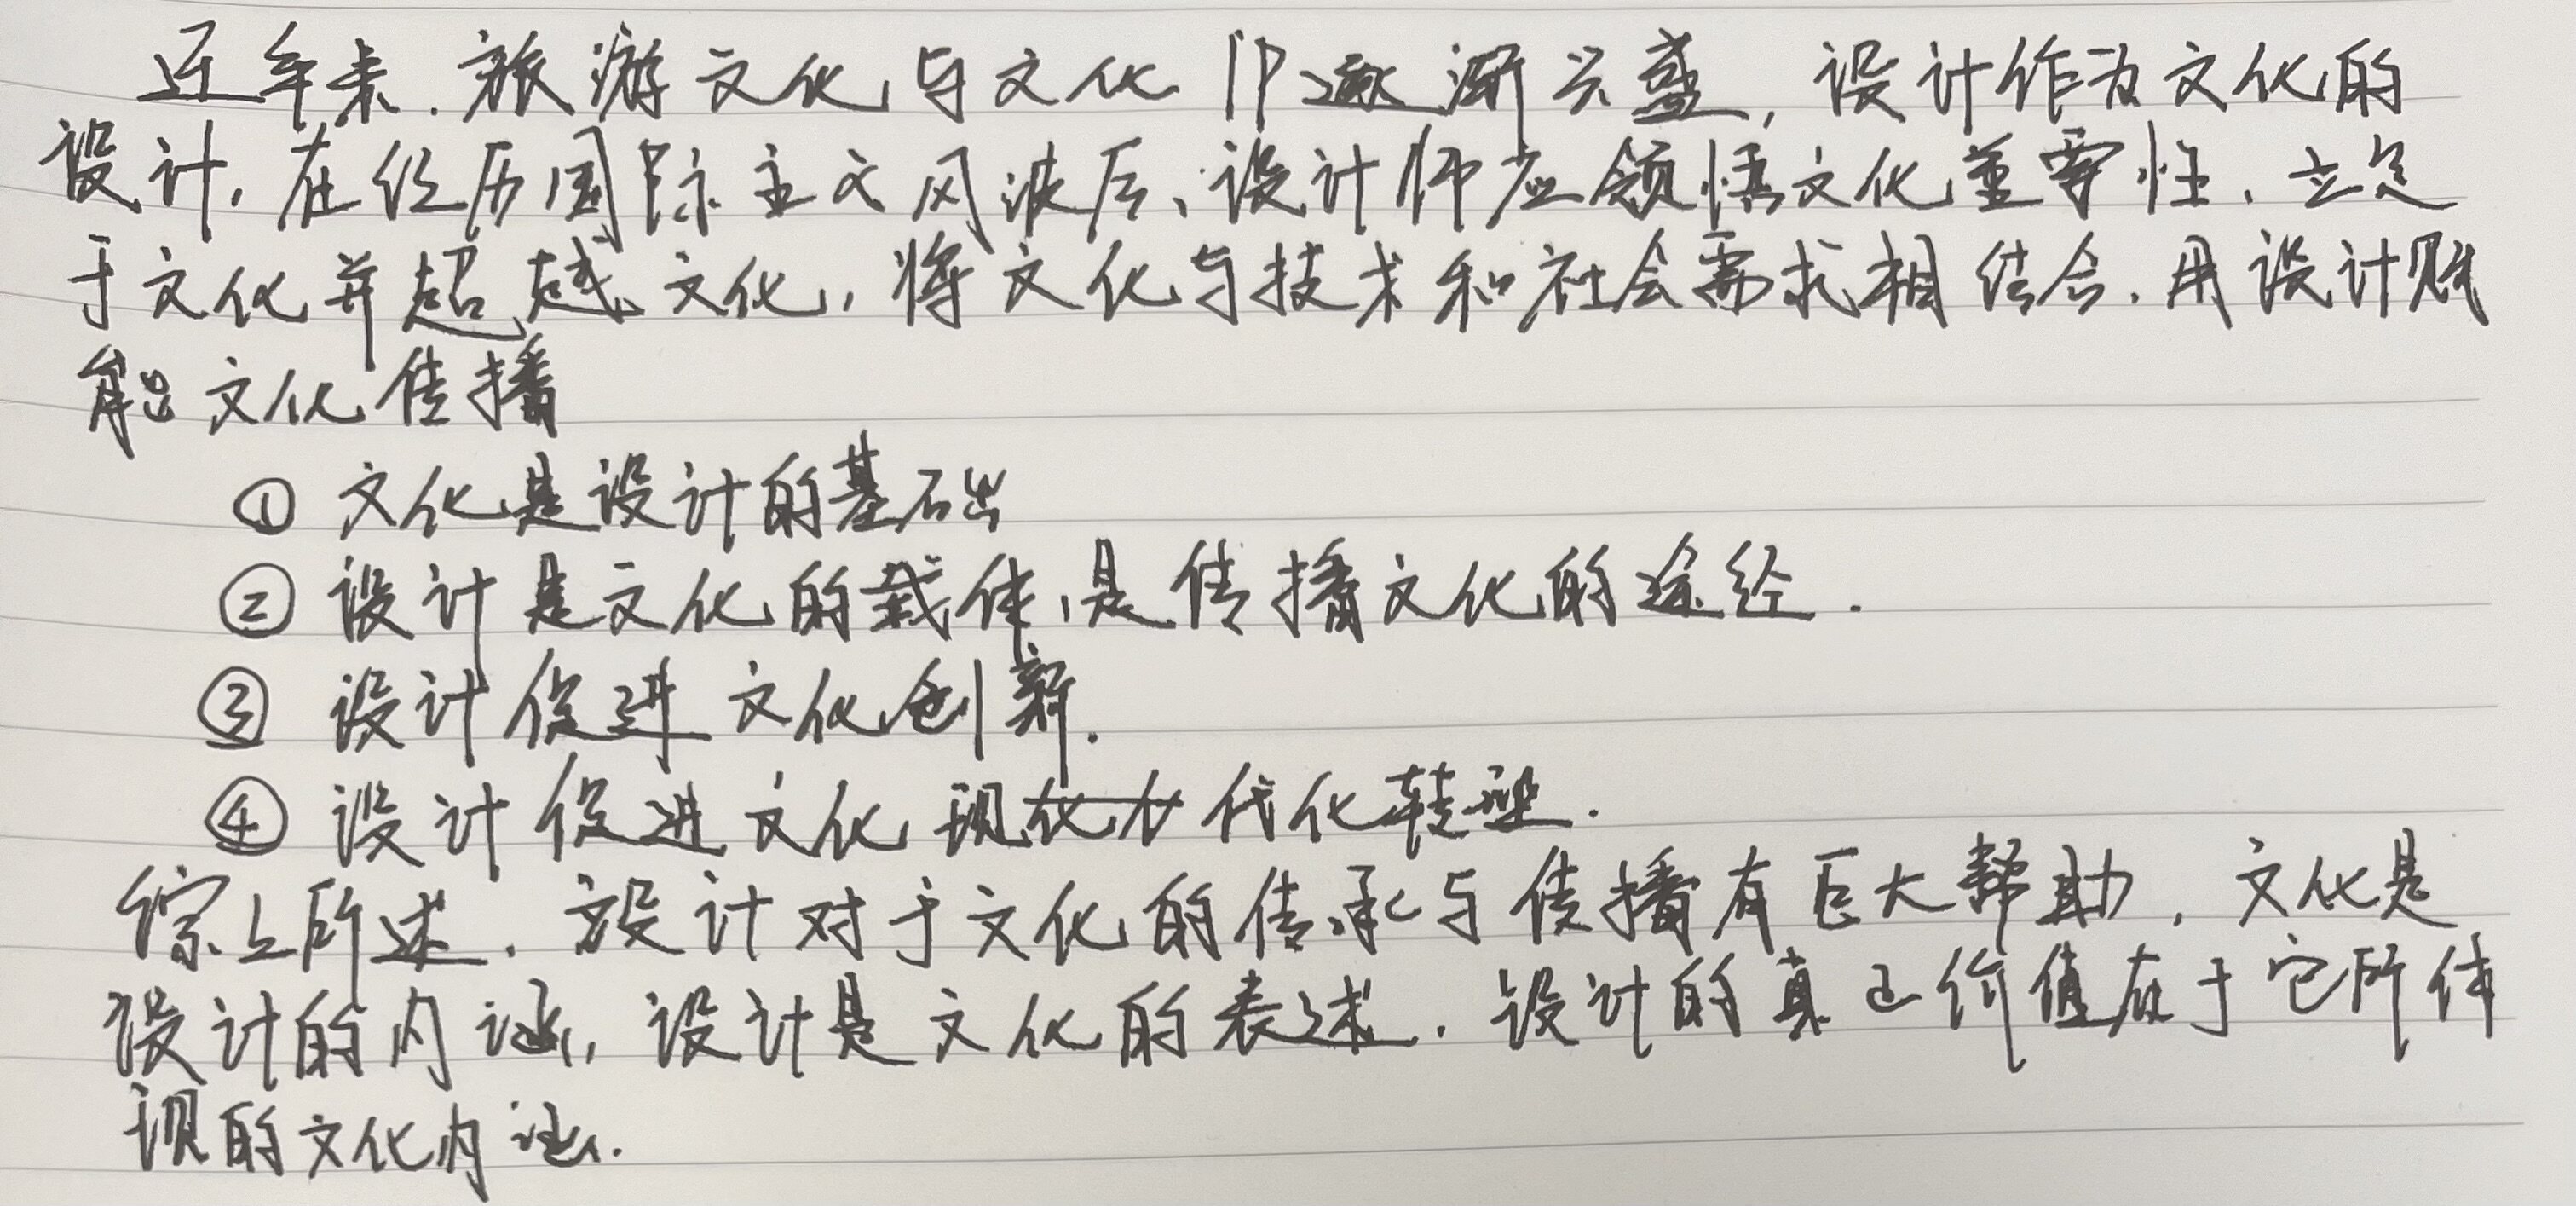 近年来.旅游文化与文化IP逐渐兴盛,设计作为文化的
设计,在经历国际主义风波后、设计师应领悟文化重要性.立足
于文化并超越文化,将文化与技术和社会需求相结合.用设计赋
能文化传播
① 文化是设计的基础
② 设计是文化的载体,是传播文化的途径.
③ 设计促进文化创新.
④ 设计促进文化现代化转型.
综上所述.设计对于文化的传承与传播有巨大帮助,文化是
设计的内涵,设计是文化的表述.设计的真正价值在于它所体
现的文化内涵.